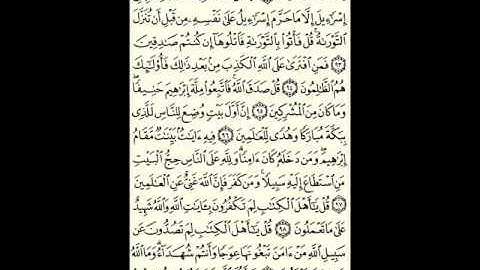 إِسْرَٰٓءِيلَ إِلَّا مَا حَرَّمَ إِسْرَٰٓءِيلُ عَلَىٰ نَفْسِهِۦ مِن قَبْلِ أَن تُنَزَّلَ
ٱلتَّوْرَىٰةُ ۗ قُلْ فَأْتُوا۟ بِٱلتَّوْرَىٰةِ فَٱتْلُوهَآ إِن كُنتُمْ صَٰدِقِينَ
٩٣ فَمَنِ ٱفْتَرَىٰ عَلَى ٱللَّهِ ٱلْكَذِبَ مِنۢ بَعْدِ ذَٰلِكَ فَأُو۟لَٰٓئِكَ
هُمُ ٱلظَّٰلِمُونَ ٩٤ قُلْ صَدَقَ ٱللَّهُ ۗ فَٱتَّبِعُوا۟ مِلَّةَ إِبْرَٰهِيمَ حَنِيفًا ۖ
وَمَا كَانَ مِنَ ٱلْمُشْرِكِينَ ٩٥ إِنَّ أَوَّلَ بَيْتٍ وُضِعَ لِلنَّاسِ لَلَّذِى
بِبَكَّةَ مُبَارَكًا وَهُدًى لِّلْعَٰلَمِينَ ٩٦ فِيهِ ءَايَٰتٌۢ بَيِّنَٰتٌ مَّقَامُ
إِبْرَٰهِيمَ ۖ وَمَن دَخَلَهُۥ كَانَ ءَامِنًا ۗ وَلِلَّهِ عَلَى ٱلنَّاسِ حِجُّ ٱلْبَيْتِ
مَنِ ٱسْتَطَاعَ إِلَيْهِ سَبِيلًا ۚ وَمَن كَفَرَ فَإِنَّ ٱللَّهَ غَنِىٌّ عَنِ ٱلْعَٰلَمِينَ
٩٧ قُلْ يَٰٓأَهْلَ ٱلْكِتَٰبِ لِمَ تَكْفُرُونَ بِـَٔايَٰتِ ٱللَّهِ وَٱللَّهُ شَهِيدٌ
عَلَىٰ مَا تَعْمَلُونَ ٩٨ قُلْ يَٰٓأَهْلَ ٱلْكِتَٰبِ لِمَ تَصُدُّونَ عَن
سَبِيلِ ٱللَّهِ مَنْ ءَامَنَ تَبْغُونَهَا عِوَجًا وَأَنتُمْ شُهَدَآءُ ۗ وَمَا ٱللَّهُ